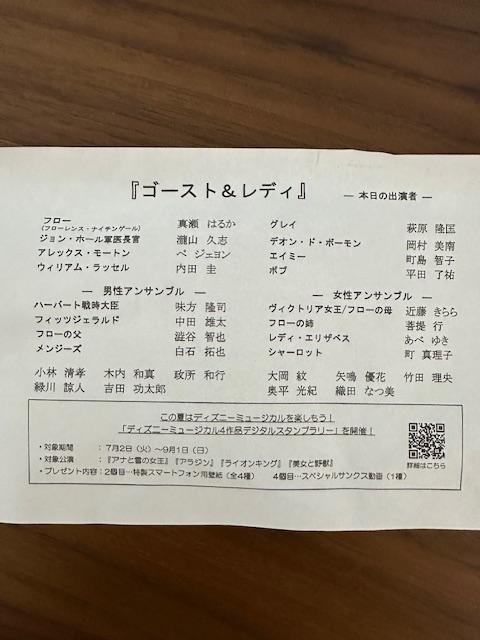 『ゴースト&レディ』 ― 本日の出演者 ―
フロー 真瀬 はるか
(フローレンス・ナイチンゲール)
ジョン・ホール軍医長官 瀧山 久志
アレックス・モートン ペ ジェヨン
ウィリアム・ラッセル 内田 圭
グレイ 萩原 隆匡
デオン・ド・ボーモン 岡村 美南
エイミー 町島 智子
ボブ 平田 了祐
― 男性アンサンブル ―
ハーバート戦時大臣 味方 隆司
フィッツジェラルド 中田 雄太
フローの父 澁谷 智也
メンジーズ 白石 拓也
小林 清孝 木内 和真 政所 和行
緑川 諒人 吉田 功太郎
― 女性アンサンブル ―
ヴィクトリア女王/フローの母 近藤 きらら
フローの姉 菩提 行
レディ・エリザベス あべ ゆき
シャーロット 町 真理子
大岡 紋 矢鳴 優花 竹田 理央
奥平 光紀 織田 なつ美
この夏はディズニーミュージカルを楽しもう!
「ディズニーミュージカル4作品デジタルスタンプラリー」を開催!
・対象期間 : 7月2日(火)~9月1日(日)
・対象公演 : 『アナと雪の女王』『アラジン』『ライオンキング』『美女と野獣』
・プレゼント内容:2個目…特製スマートフォン用壁紙(全4種) 4個目…スペシャルサンクス動画(1種)
詳細はこちら